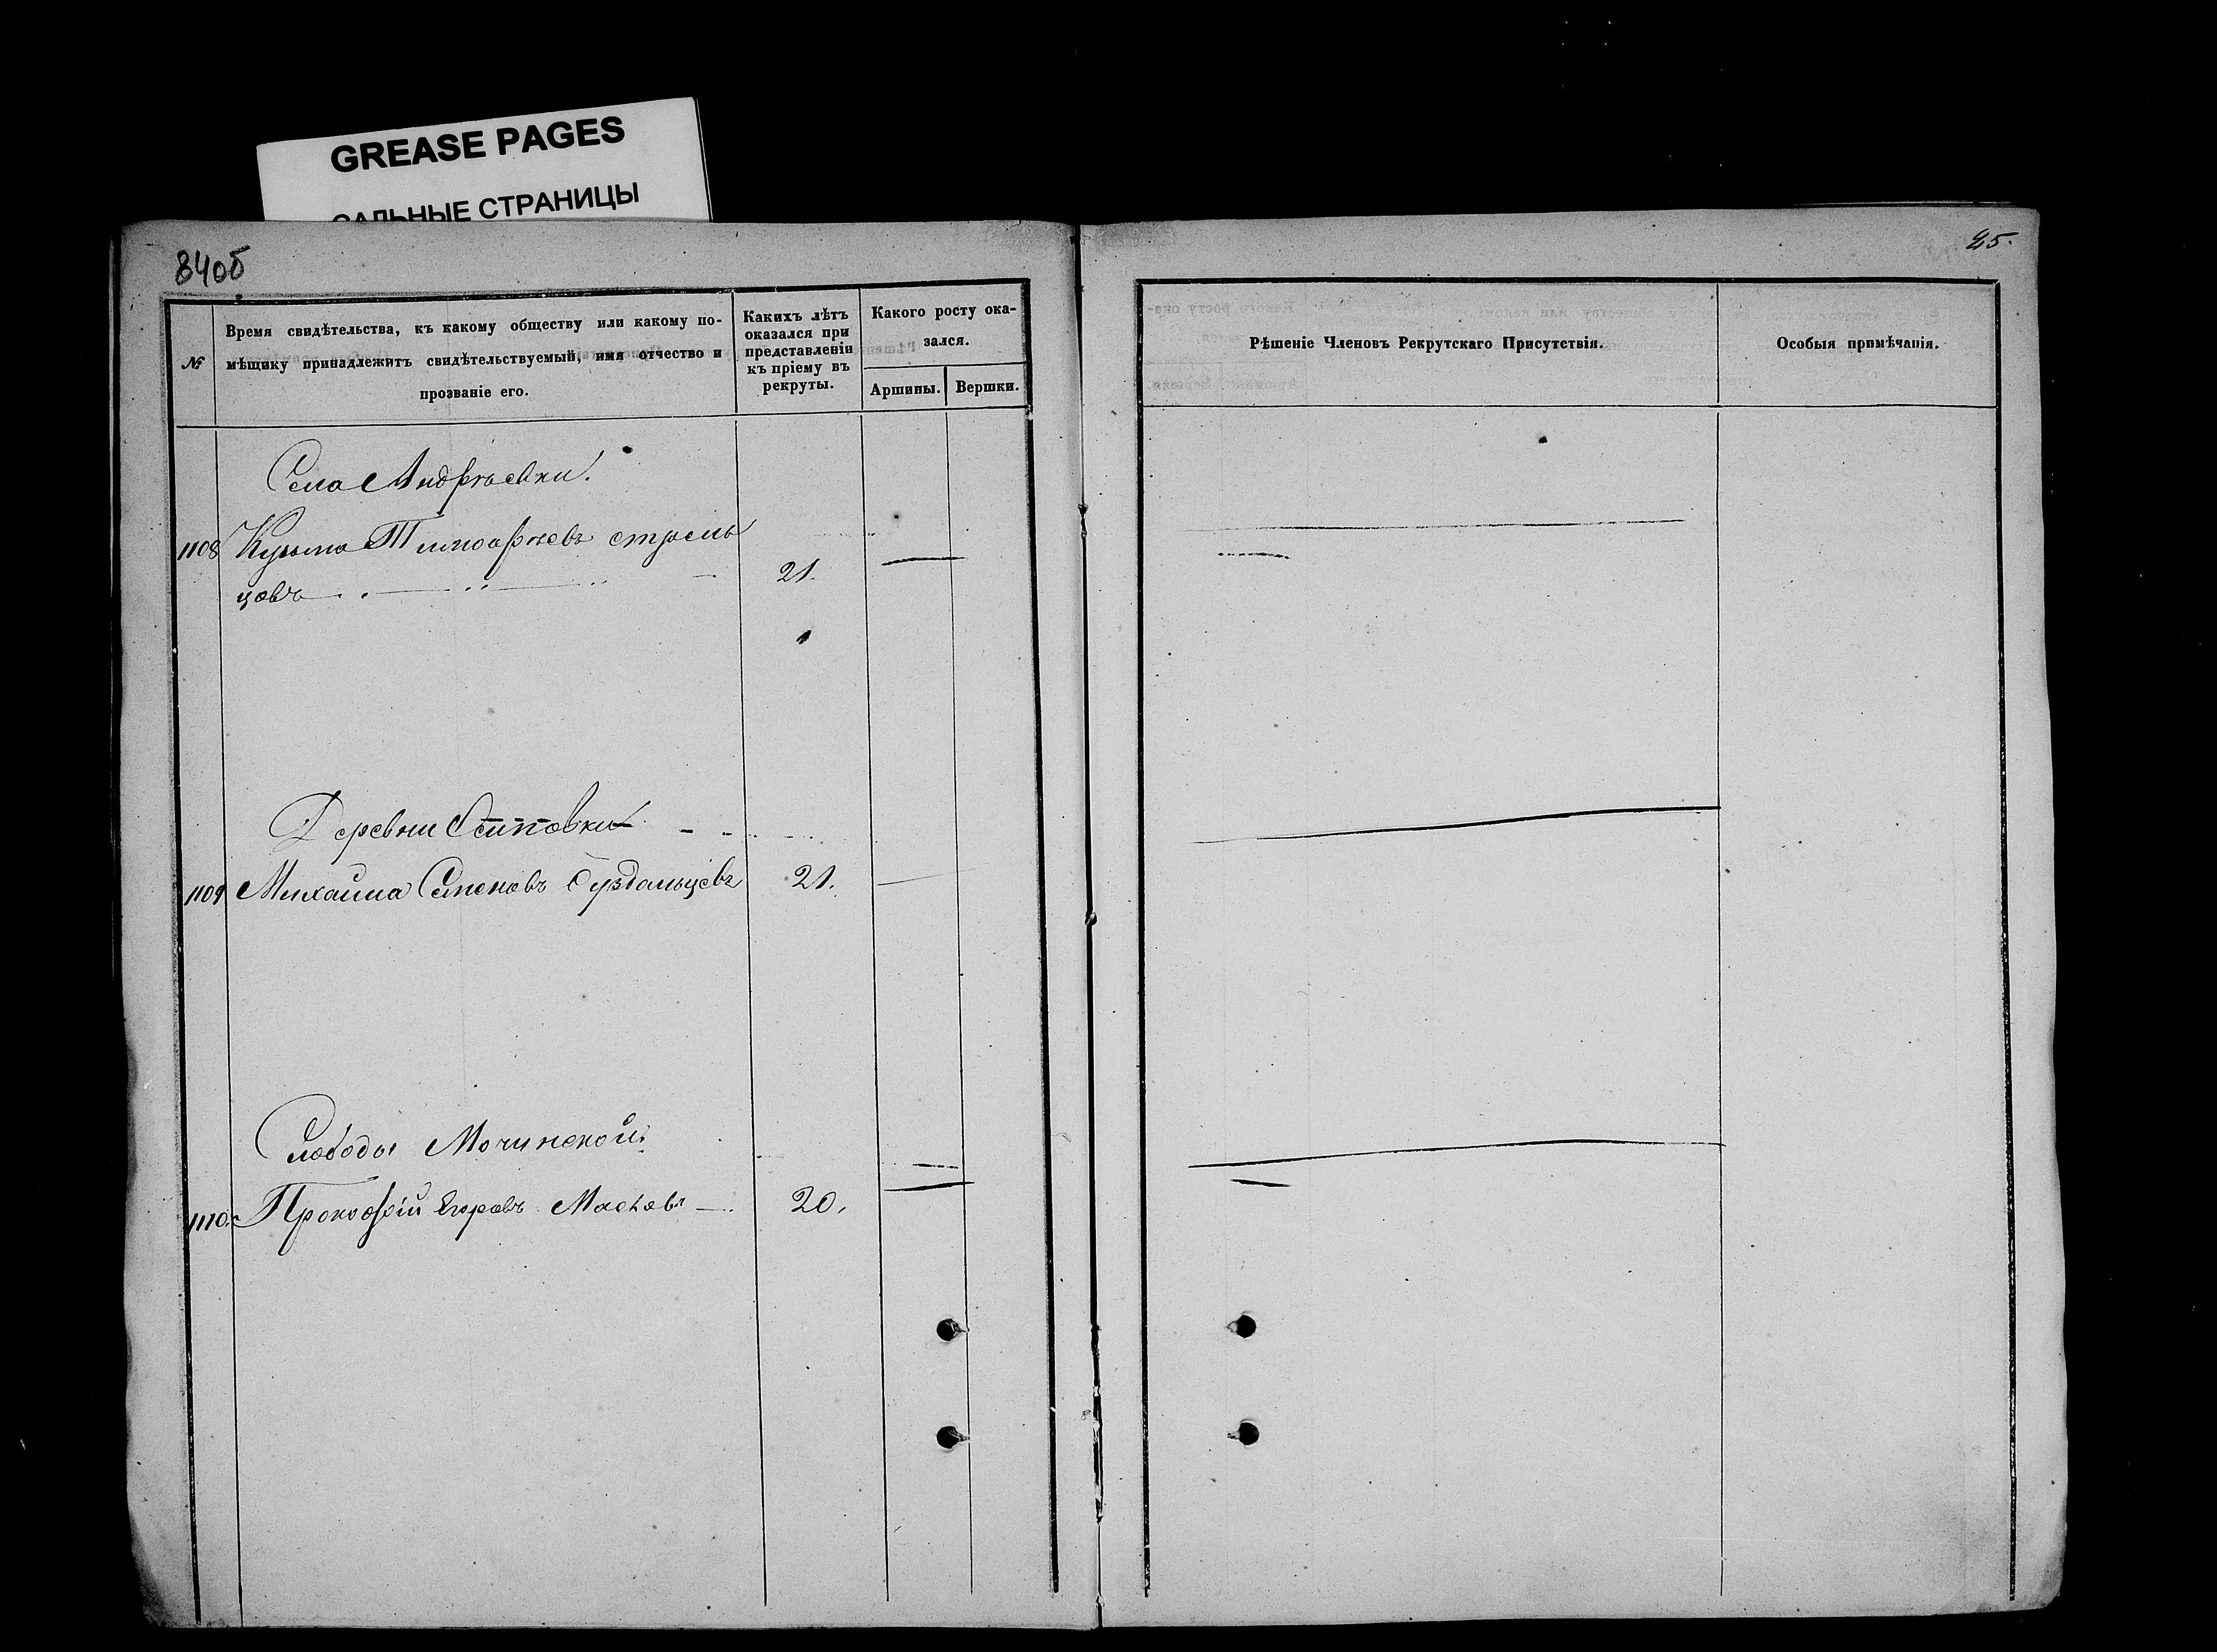 GREASE PAGES
САЛЬНЫЕ СТРАНИЦЫ
84об
25.
№
Время свидѣтельства, къ какому обществу или какому по-
мѣщику принадлежитъ свидѣтельствуемый, имя отчество и
прозваніе его.
Какихъ лѣтъ
оказался при
представленіи
къ пріему въ
рекруты.
Какого росту ока-
зался.
Аршины.
Вершки.
Рѣшеніе Членовъ Рекрутскаго Присутствія.
Особыя примѣчанія.
Села Андрѣевки.
1108 Кузьма Тимофѣевъ стрель
цовъ 21.
Деревни Осиповки
1109 Михаила Семеновъ Суздальцевъ 21.
Слободы Мочинской.
1110. Прокофій Егоровъ 20.